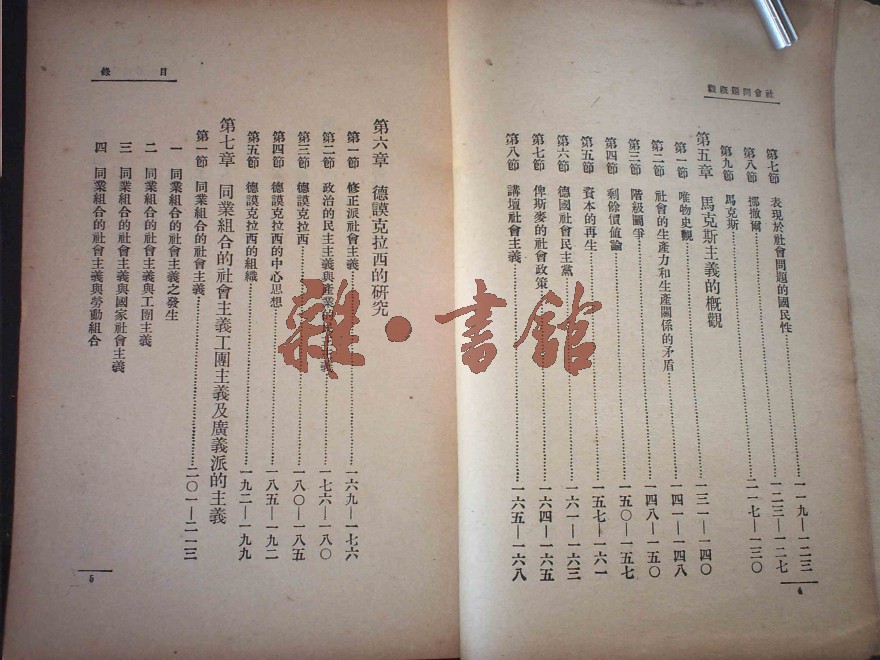 社會問題概觀
第七節 表現於社會問題的國民性…………一一九—一二三
第八節 挪撒爾…………一二三—一二七
第九節 馬克斯…………二一七—一三〇
第五章 馬克斯主義的概觀
第一節 唯物史觀…………一三一—一四〇
第二節 社會的生產力和生產關係的矛盾…………一四一—一四八
第三節 階級鬭爭…………一四八—一五〇
第四節 剩餘價值論…………一五〇—一五七
第五節 資本的再生…………一五七—一六一
第六節 德國社會民主黨…………一六一—一六三
第七節 俾斯麥的社會政策…………一六四—一六五
第八節 講壇社會主義…………一六五—一六八
4
目錄
第六章 德謨克拉西的研究
第一節 修正派社會主義…………一六九—一七六
第二節 政治的民主主義與產業的民主主義…………一七六—一八〇
第三節 德謨克拉西…………一八〇—一八五
第四節 德謨克拉西的中心思想…………一八五—一九二
第五節 德謨克拉西的組織…………一九二—一九九
第七章 同業組合的社會主義工團主義及廣義派的主義
第一節 同業組合的社會主義…………二〇一—二一三
一 同業組合的社會主義之發生
二 同業組合的社會主義與工團主義
三 同業組合的社會主義與國家社會主義
四 同業組合的社會主義與勞動組合
5
雜·書館